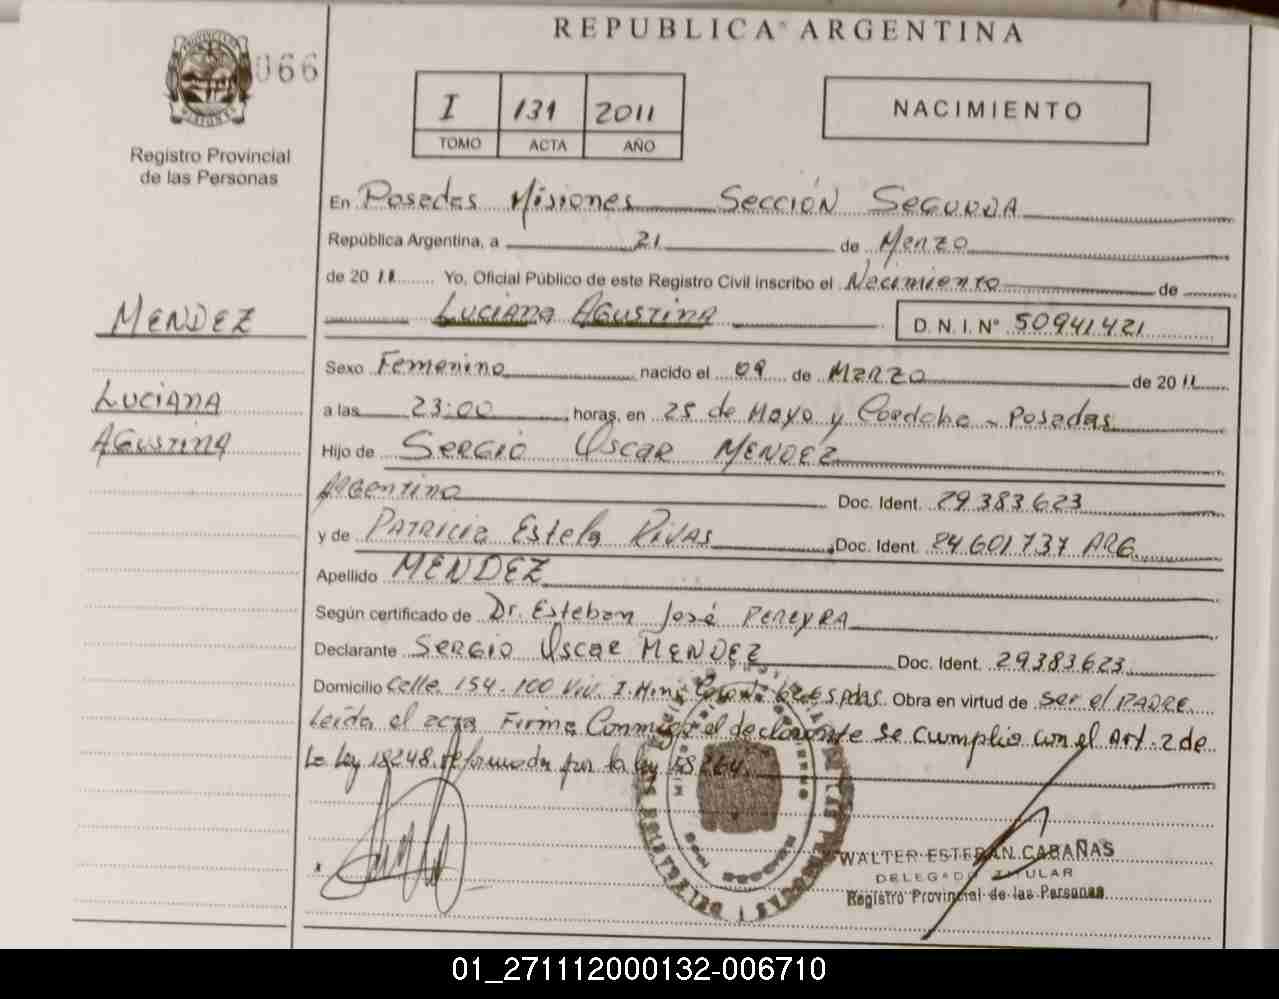 REPUBLICA ARGENTINA
066
I 131 2011
TOMO ACTA AÑO
NACIMIENTO
Registro Provincial
de las Personas
En Posadas Misiones Sección Segunda
República Argentina, a 21 de Marzo
de 2011 Yo, Oficial Público de este Registro Civil inscribo el Nacimiento de
Luciana Agustina D. N. I. N° 50941421
MENDEZ
Luciana
Agustina
Sexo Femenino nacido el 09 de Marzo de 2011
a las 23:00 horas, en 25 de Mayo y Cordoba - Posadas
Hijo de Sergio Oscar MENDEZ
Argentino Doc. Ident. 29.383.623
y de Patricia Estela Rivas Doc. Ident. 24.601.737 ARG.
Apellido MENDEZ
Según certificado de Dr. Esteban José PEREYRA
Declarante Sergio Oscar MENDEZ Doc. Ident. 29.383.623
Domicilio Calle 154 - 100 Viv. Obra en virtud de ser el PADRE
Leída el acta Firma Conmigo el declarante se cumplio con el Art. 2 de
La Ley 18248 reformada por la ley
WALTER ESTEBAN CABAÑAS
DELEGADO TITULAR
Registro Provincial de las Personas
01_271112000132-006710